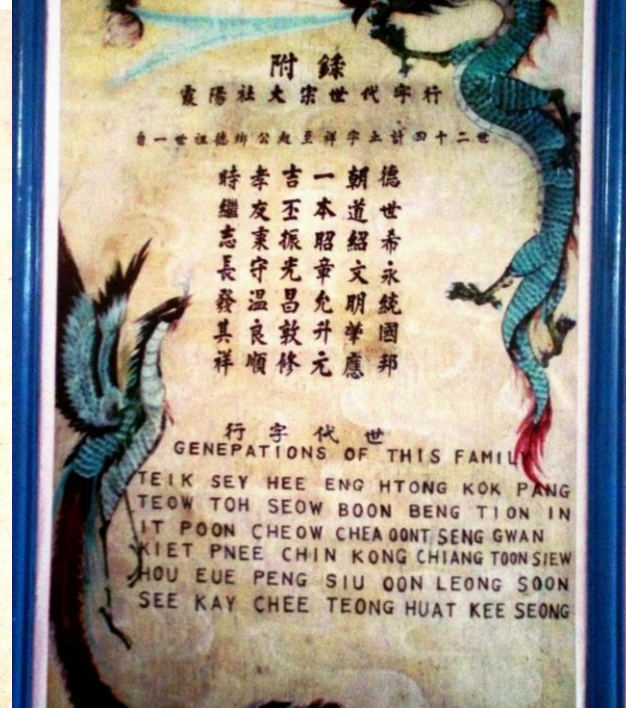 附錄
霞陽社大宗世代字行
一世祖德公起至祥字止計四十二世
德世希永統國邦
朝道紹文明肇應
一本昭章允升元
吉丕振光昌敦修
孝友秉守溫良順
時繼志長發其祥
世代字行
GENEPATIONS OF THIS FAMILY
TEIK SEY HEE ENG HTONG KOK PANG
TEOW TOH SEOW BOON BENG TION IN
IT POON CHEOW CHEA OONT SENG GWAN
KIET PNEE CHIN KONG CHIANG TOON SIEW
HOU EUE PENG SIU OON LEONG SOON
SEE KAY CHEE TEONG HUAT KEE SEONG